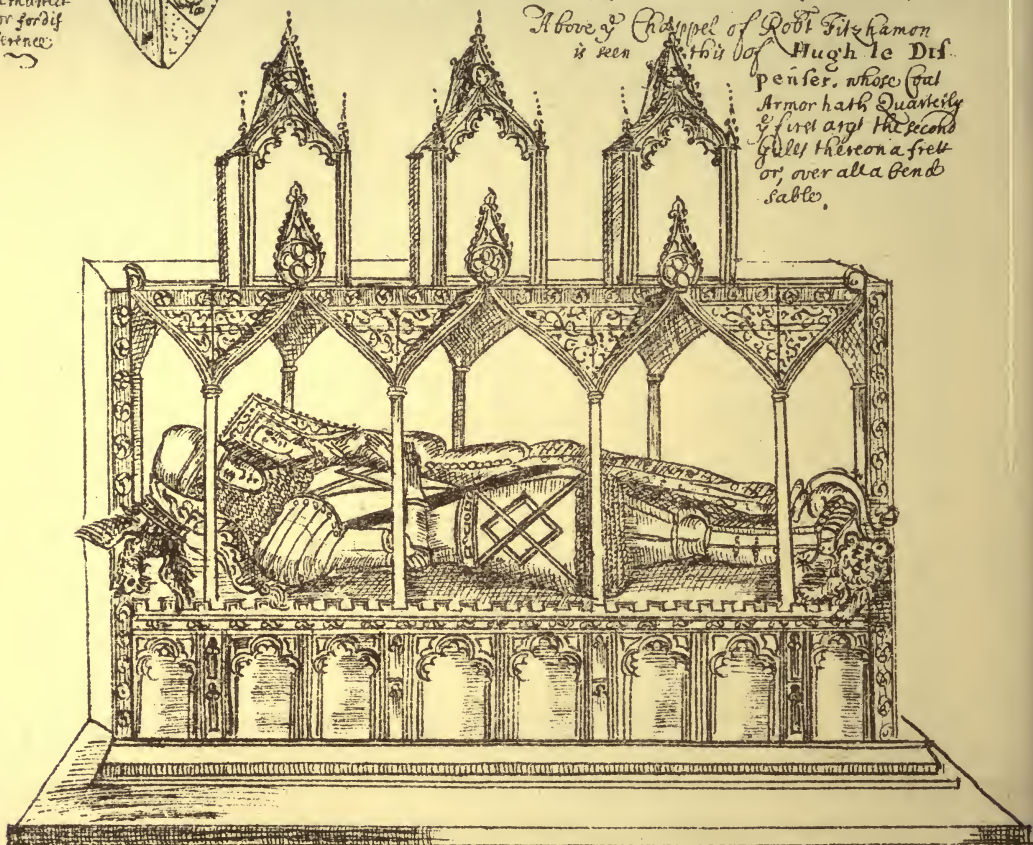 or fordif
ference
Above yͤ Chappel of Robt Fitzhamon
is seen this of Hugh le Dis-
penser. whose Coat
Armor hath Quarterly
yͤ first argt the second
Gules thereon a frett
or, over all a bend
sable.